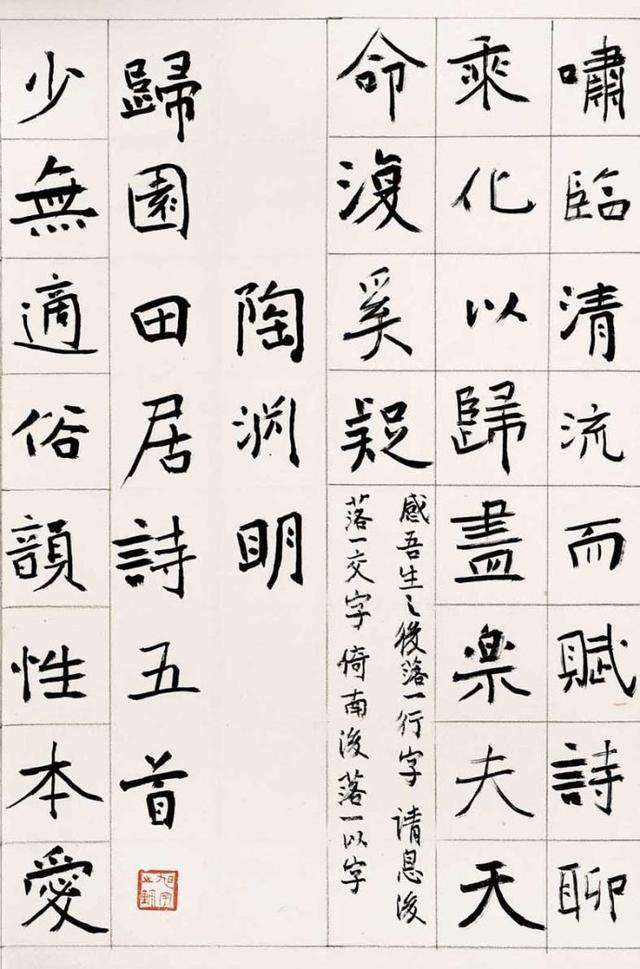 嘯臨清流而賦詩聊
乘化以歸盡樂夫天
命復奚疑
感吾生之後落一行字 請息後
落一交字 倚南後落一以字
陶渊明
歸園田居詩五首
少無適俗韻性本愛